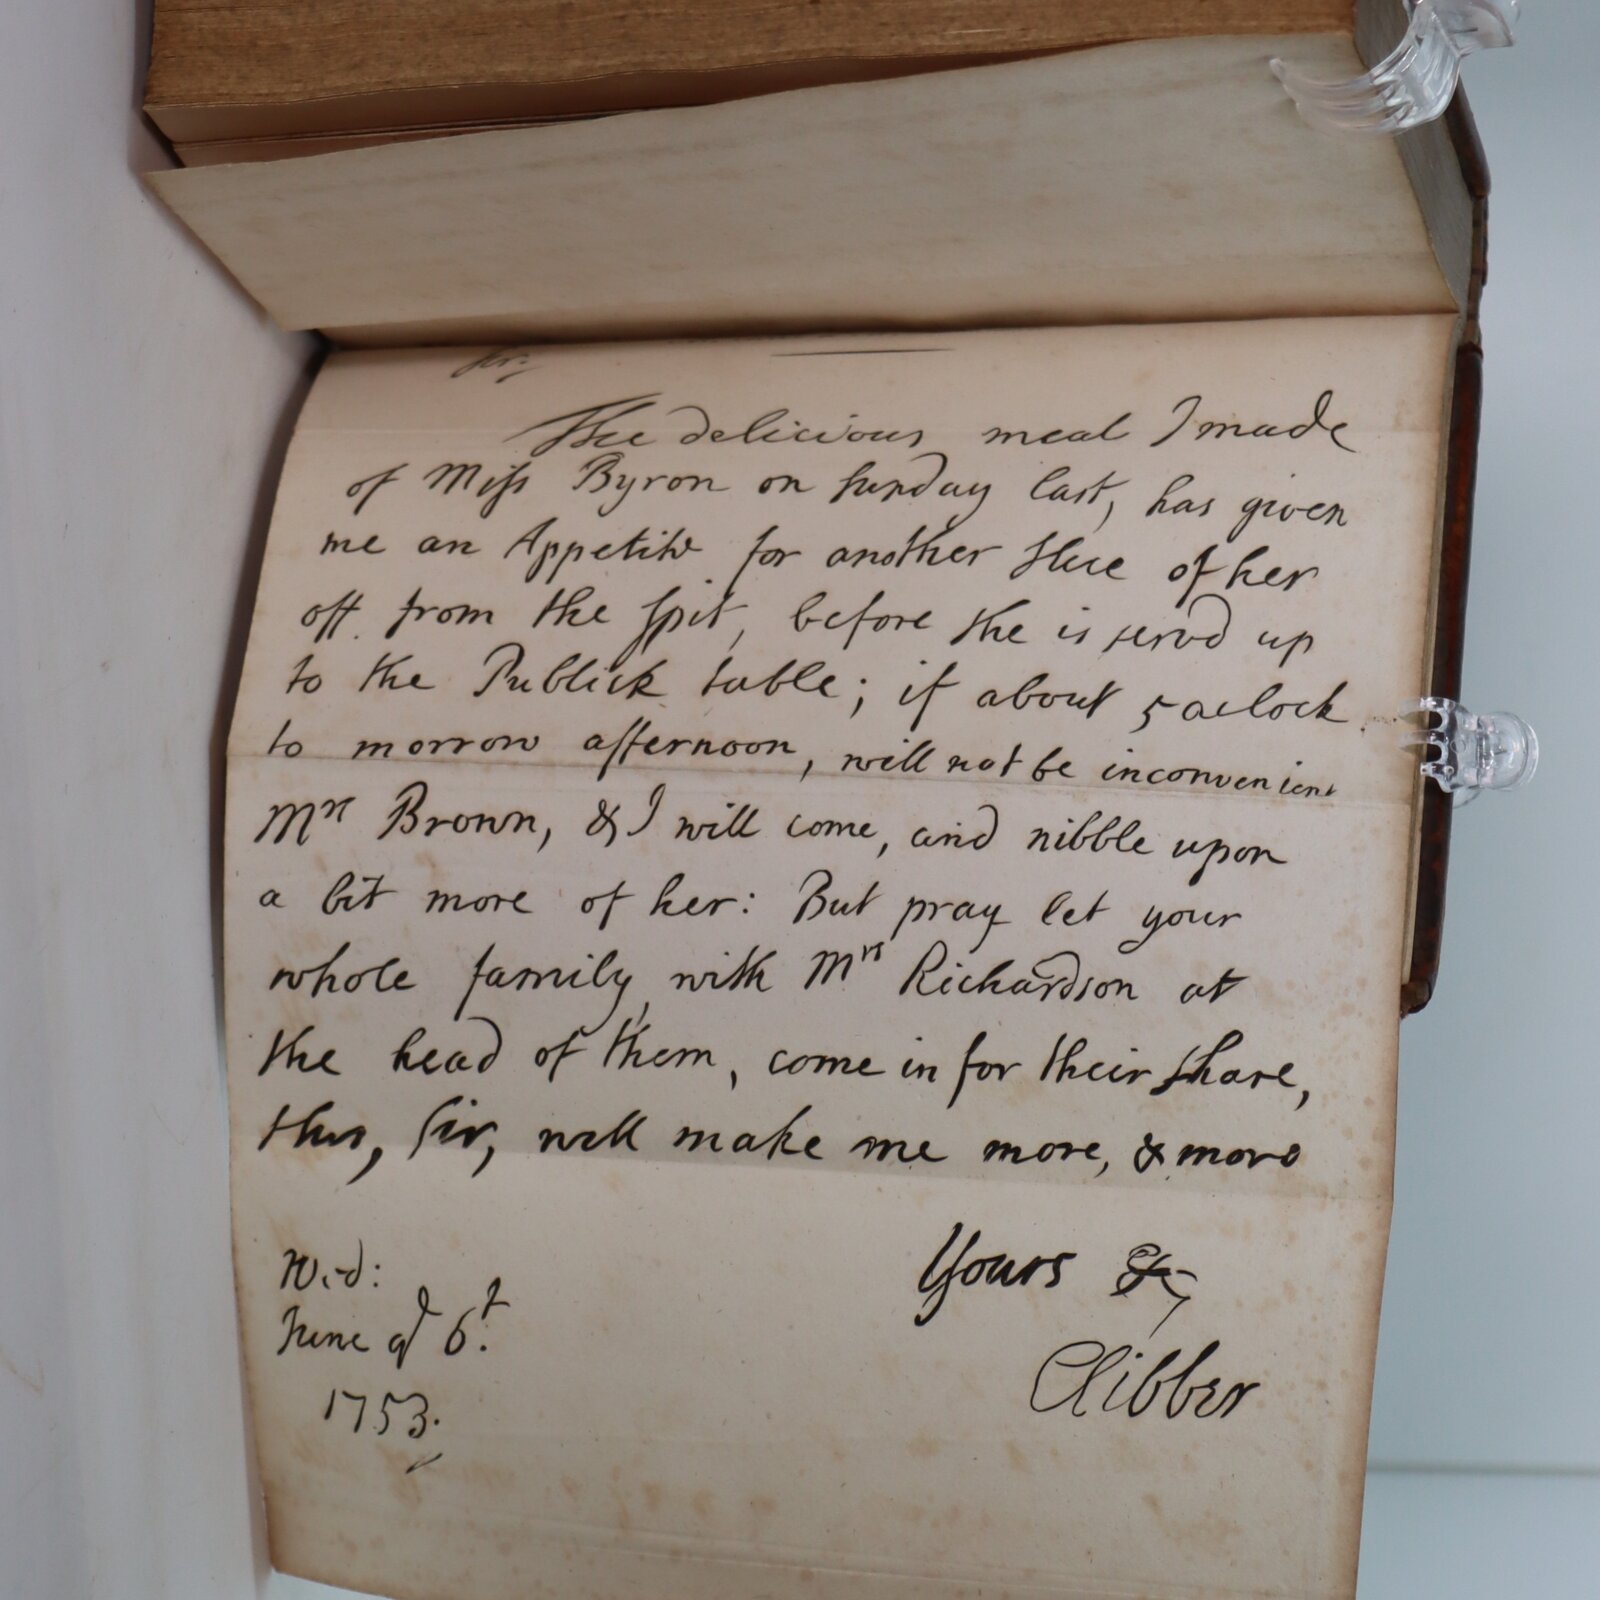 Sir,
The delicious meal I made
of Miss Byron on Sunday last, has given
me an Appetite for another slice of her
off from the spit, before she is servd up
to the Publick table; if about 5 oclock
to morrow afternoon, will not be inconvenient
Mrs Brown, & I will come, and nibble upon
a bit more of her: But pray let your
whole family, with Mrs Richardson at
the head of them, come in for their share,
this, Sir, will make me more, & more
Yours &c,
Wed:
June ye 6t.
1753.
CCibber